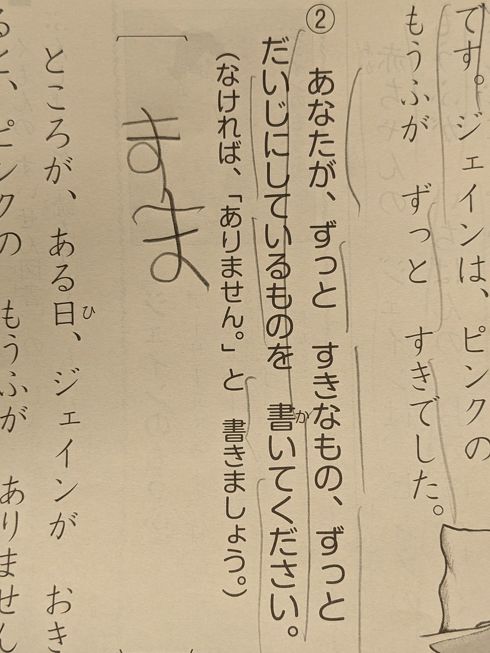 です。ジェインは、ピンクの
もうふが ずっと すきでした。
② あなたが、ずっと すきなもの、ずっと
だいじにしているものを 書いてください。
か
(なければ、「ありません。」と 書きましょう。)
まま
ところが、ある日、ジェインが おき
ひ
ると、ピンクの もうふが ありません